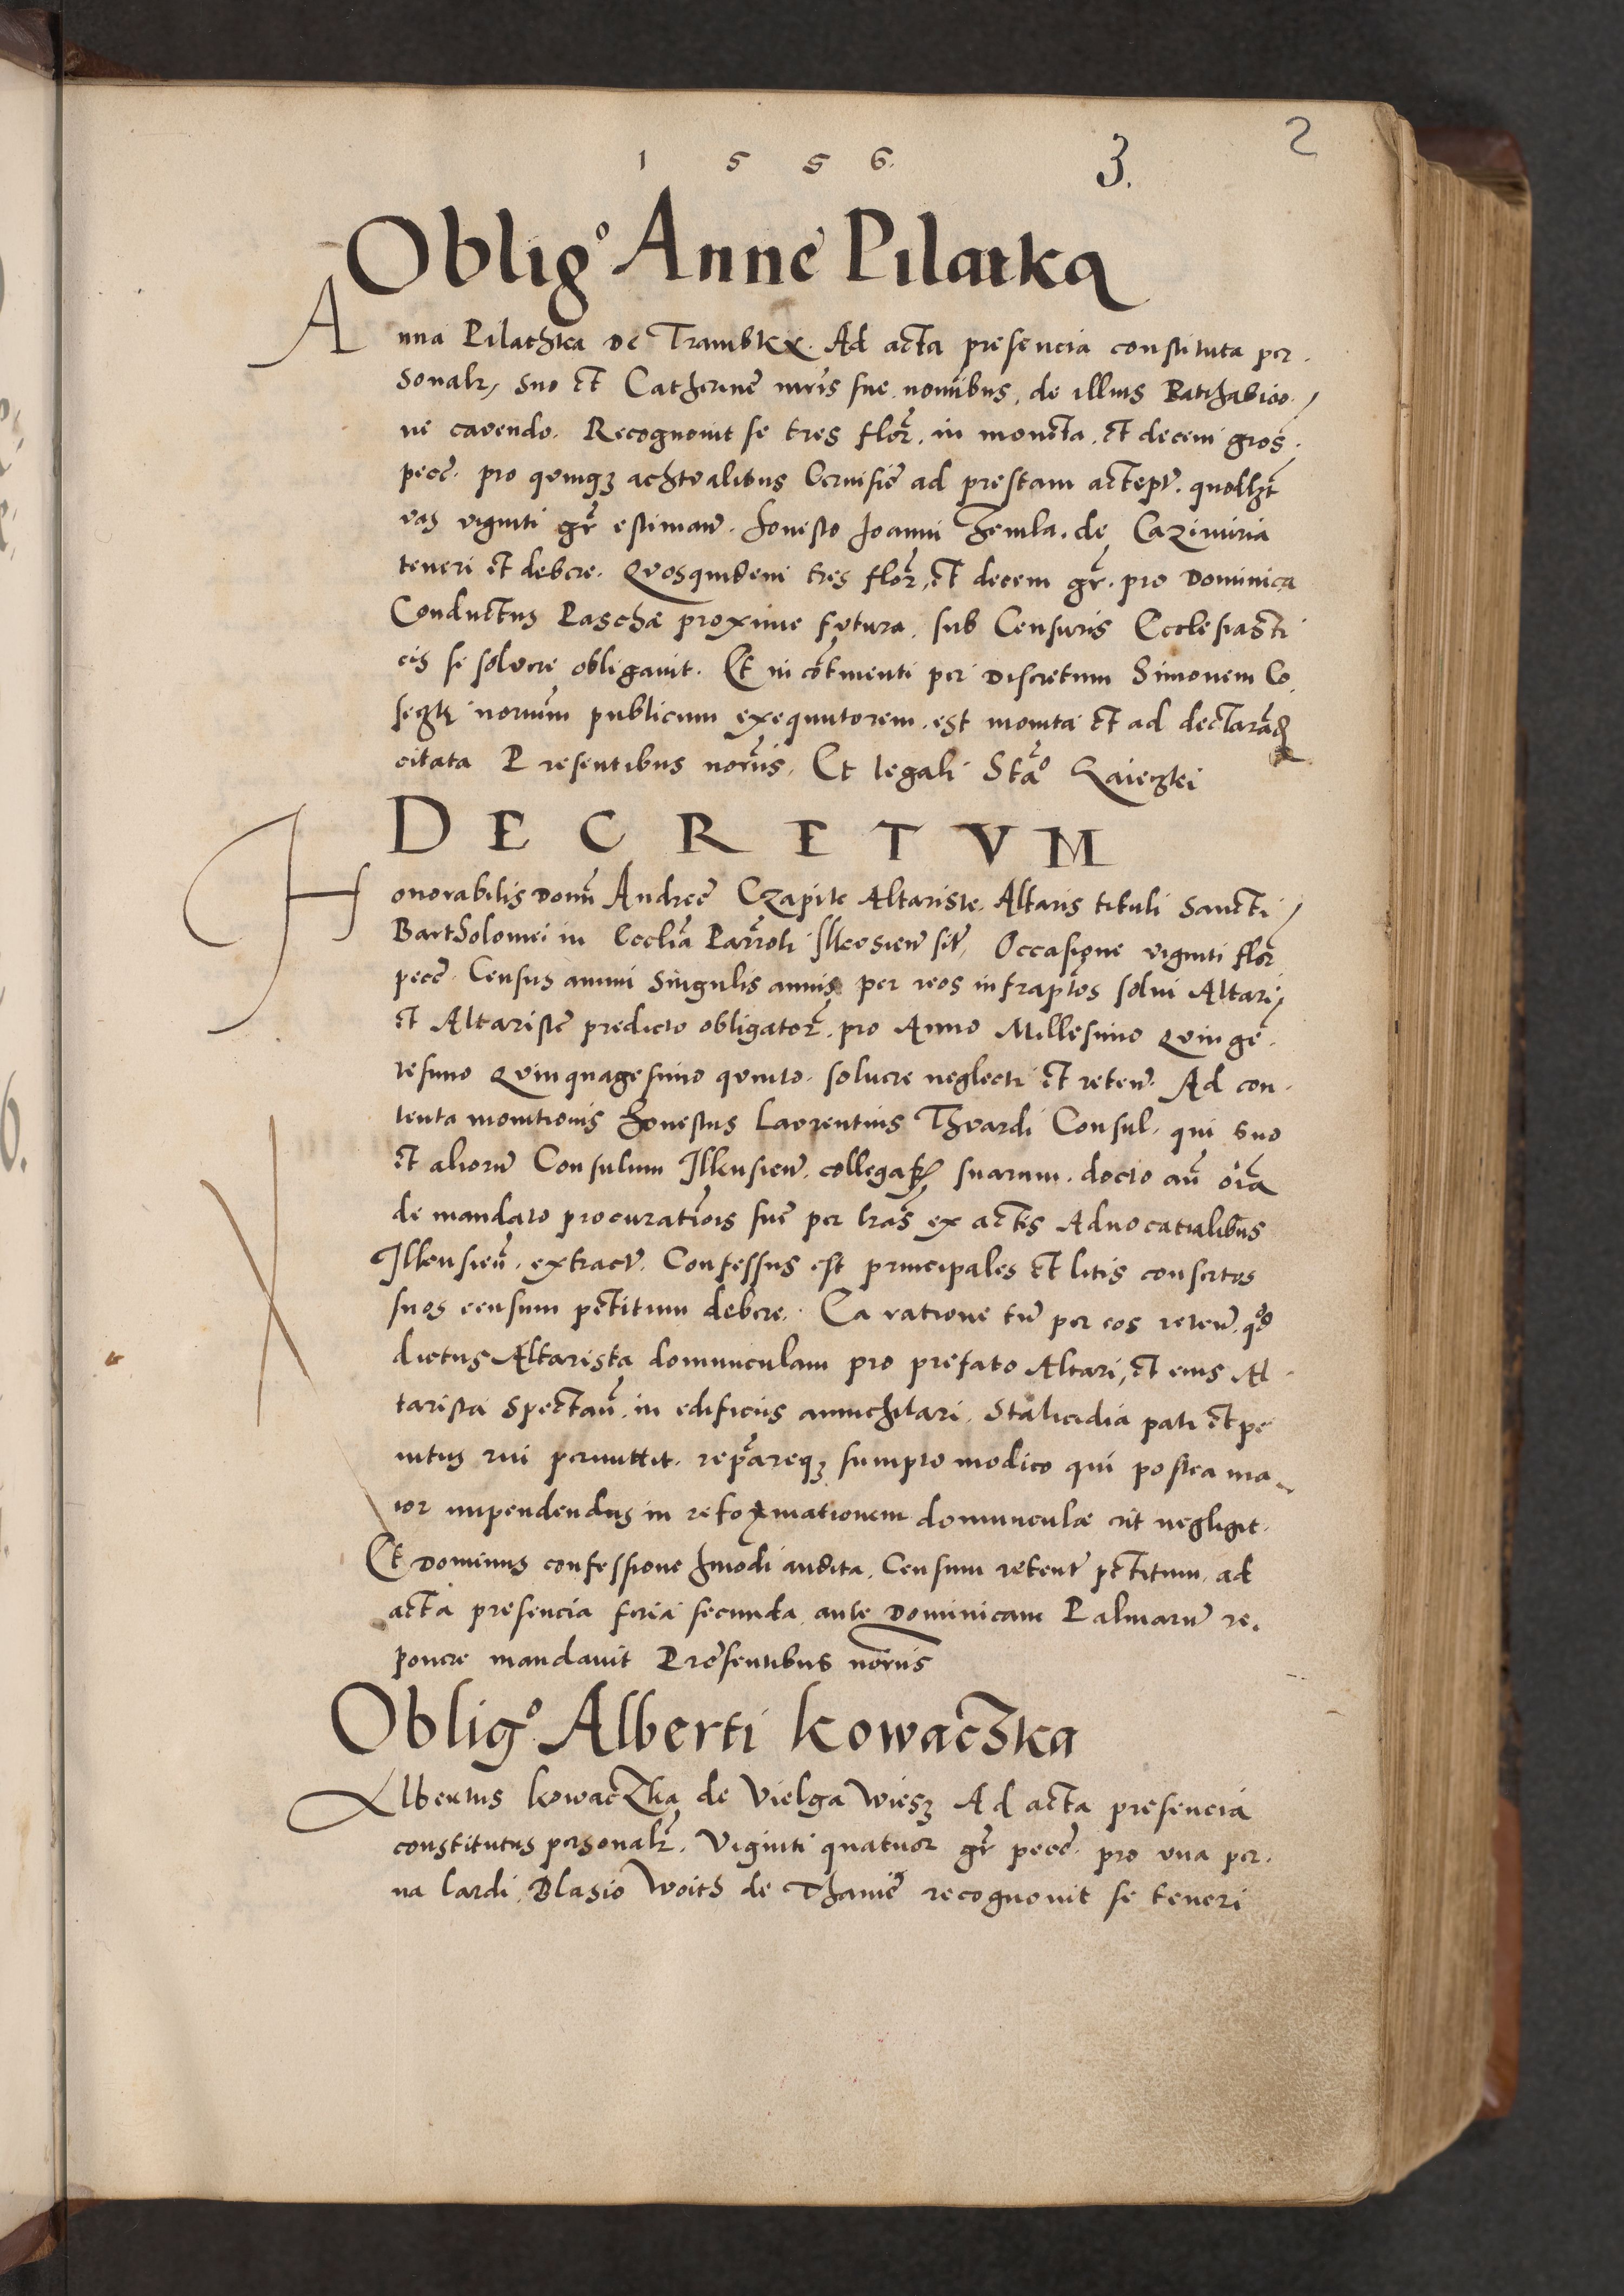 1 5 5 6. 3. 2
Oblig° Anne Pilatka
Anna Pilathka de Trambky. Ad acta presencia constituta per-
sonalr, suo et Catherine mris sue nomibus, de illius Ratihabico-
ne cavendo. Recognouit se tres flor. in moneta. et decem gros.
pecc. pro quinqz achtvalibus Cervisie ad prestam accept. quodlzt
vas viginti gr estimatu. honesto Joanni Zemla. de Cazimiria
teneri et debere. Quosquidem tres flor, et decem gr. pro Dominica
Conductus Paschæ proxime futura, sub Censuris Ecclesiasti
cis se soluere obligauit. Et in cotinenti per discretum Simonem Co
norium publicum exequutorem. est monita et ad declarand
citata Presentibus noriis. Et legali Sta°
DECRETVM
Honorabilis Domi Andree Czapite Altariste. Altaris tituli Sancti
Bartholomei in Ecclia Parroli Ilkusien sit, Occasione viginti flor
pecc. Census annui singulis annis per reos infraptos solui Altari
et Altariste predicto obligator. pro Anno Millesimo Quinge-
tesimo Quinquagesimo quinto. soluere neglecti et reten. Ad con-
tenta monitionis honestus Laurentius Thvardi Consul. qui suo
et aliorum Consulum Ilkusien. collegarz suarum. docto an oia
de mandato procurationis sue per lras ex actis Aduocatialibus
Ilkusien. extract. Confessus est principales et litis consortes
suos censum petitum debere. Ea ratione tn per eos reten. qd
dictus Altarista domunculam pro prefato Altari, et eius Al-
tarista spectan. in edificiis annichilari. Stalicidia pati et pe
nitus rui permittit. reparareqz sumpto modico qui postea ma-
ior impendendus in reformationem domunculæ erit negligit.
Et Dominus confessione hmodi audita. Censum retent petitum. ad
acta presencia feria secunda ante Dominicam Palmarum re-
ponere mandauit Presentibus noriis
Oblig° Alberti Kowaczka
Albertus Kowaczka de Vielga Wiesz Ad acta presencia
constitutus personalr. Viginti quatuor gr pecc. pro una per-
na lardi. Blasio Woith de Thanie recognouit se teneri